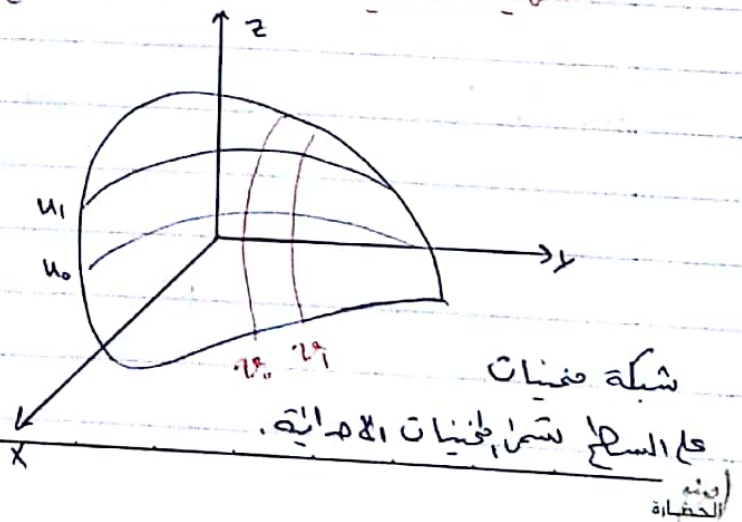 z
u₁
u₀
y
v₀ v₁
شبكة منحنيات
x
على السطح تسمى المنحنيات الاحداثية.
الحضارة